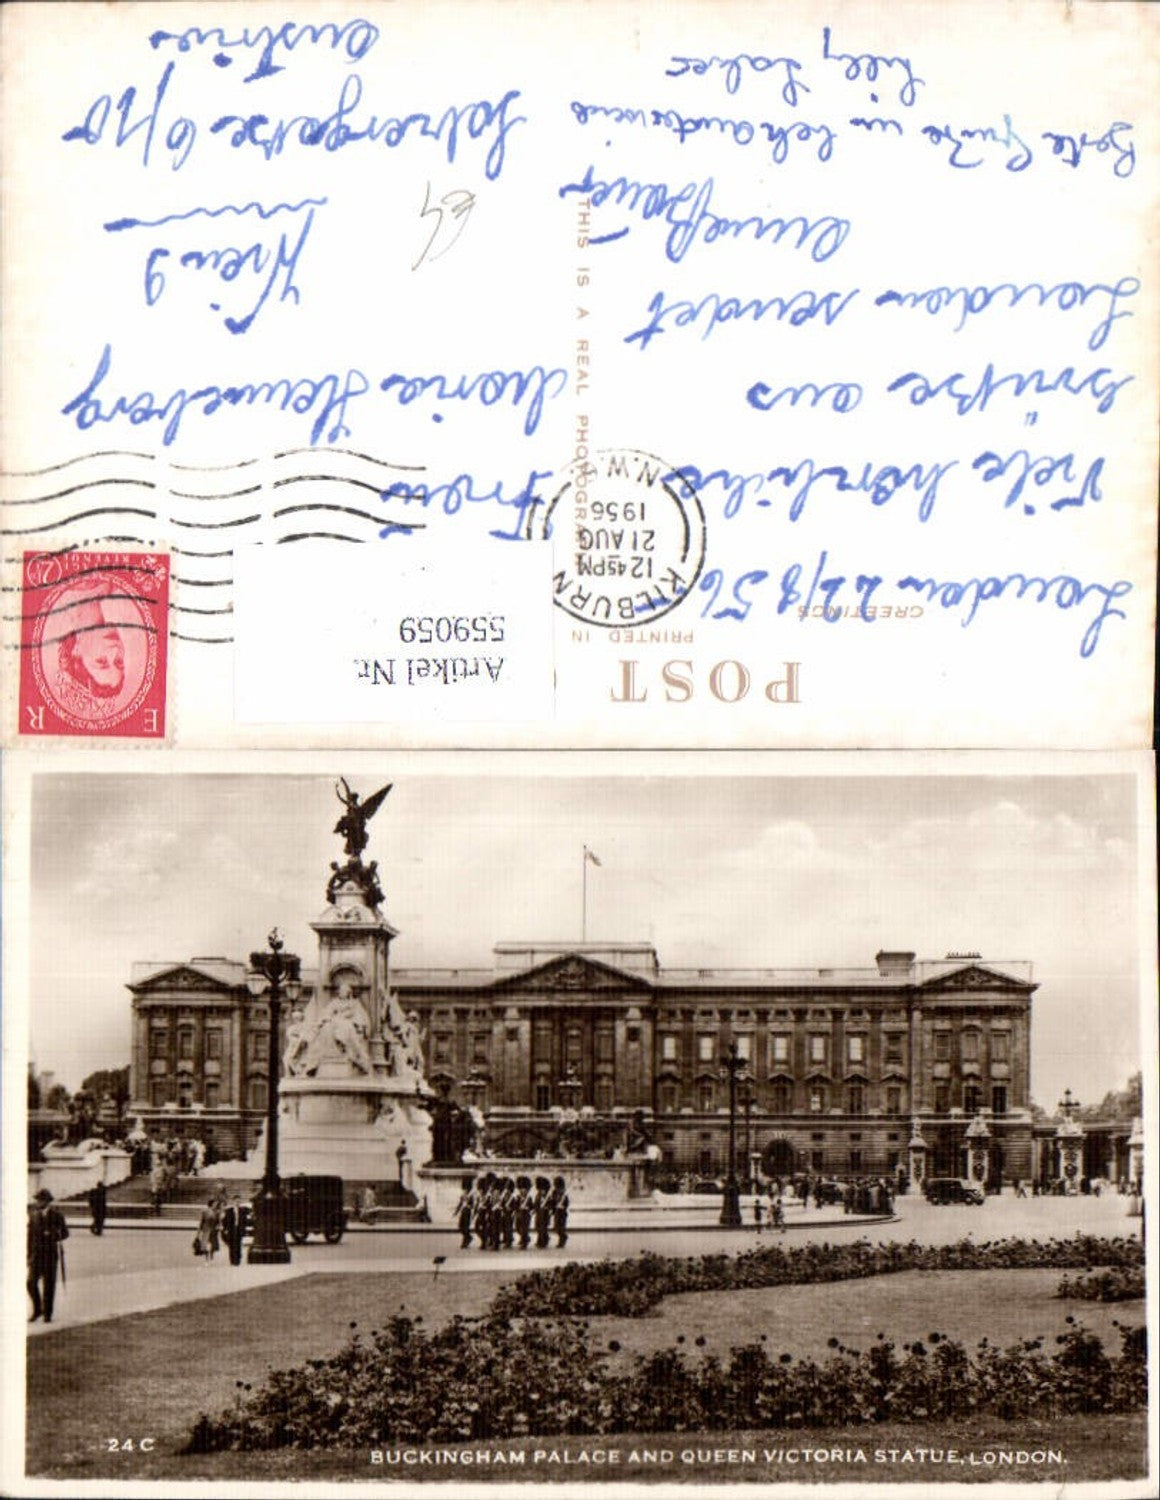 POST
GREETINGS
PRINTED IN
London 22/8 56
Viele herzliche
Grüße aus
London sendet
Beste Grüße
Lilly
THIS IS A REAL PHOTOGRAPH
KILBURN
12 45PM
21 AUG
1956
N.W.
E R
2½D
REVENUE
Artikel Nr.
559059
Frau
Maria
Wien 9
6/10
Austria
€4
24 C
BUCKINGHAM PALACE AND QUEEN VICTORIA STATUE, LONDON.